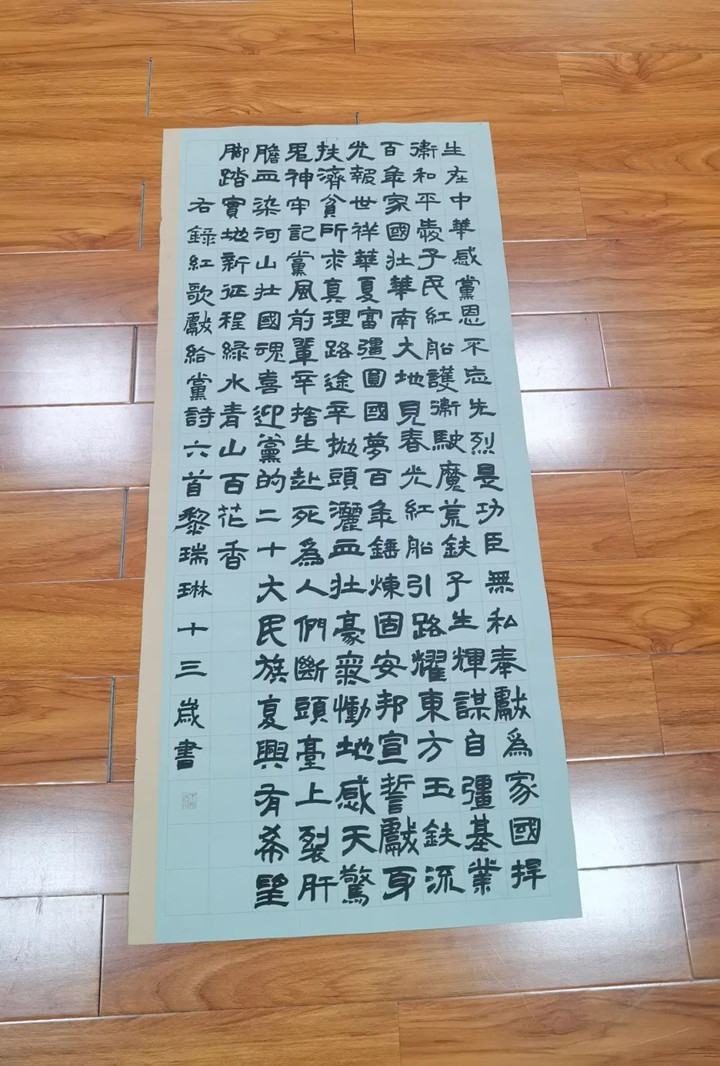 生在中華感黨恩不忘先烈是功臣無私奉獻為家國捍
衛和平愛子民紅船護衛駛魔荒鉄子生輝謀自彊基業
百年家國壯華南大地見春光紅船引路耀東方玉鉄流
光報世祥華夏富彊圓國夢百年錘煉固安邦宣誓獻身
扶濟貧所求真理路途辛拋頭灑血壯豪慟地感天驚
鬼神牢記黨風前輩辛捨生赴死為人們斷頭臺上裂肝
膽血染河山壯國魂喜迎黨的二十大民族复興有希望
脚踏實地新征程綠水青山百花香
右錄紅歌獻給黨詩六首黎瑞琳十三歲書